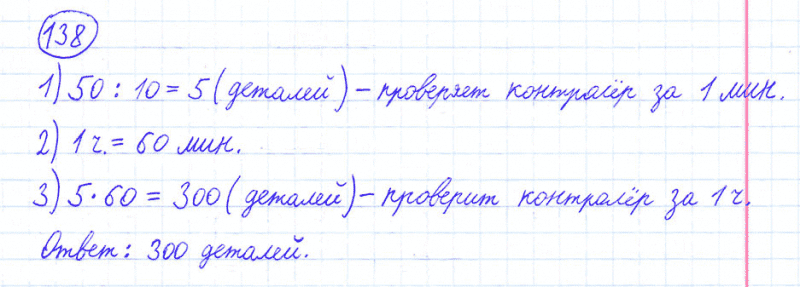 138
1) 50 : 10 = 5 (деталей) – проверяет контролёр за 1 мин.
2) 1 ч. = 60 мин.
3) 5 · 60 = 300 (деталей) – проверит контролёр за 1 ч.
Ответ: 300 деталей.